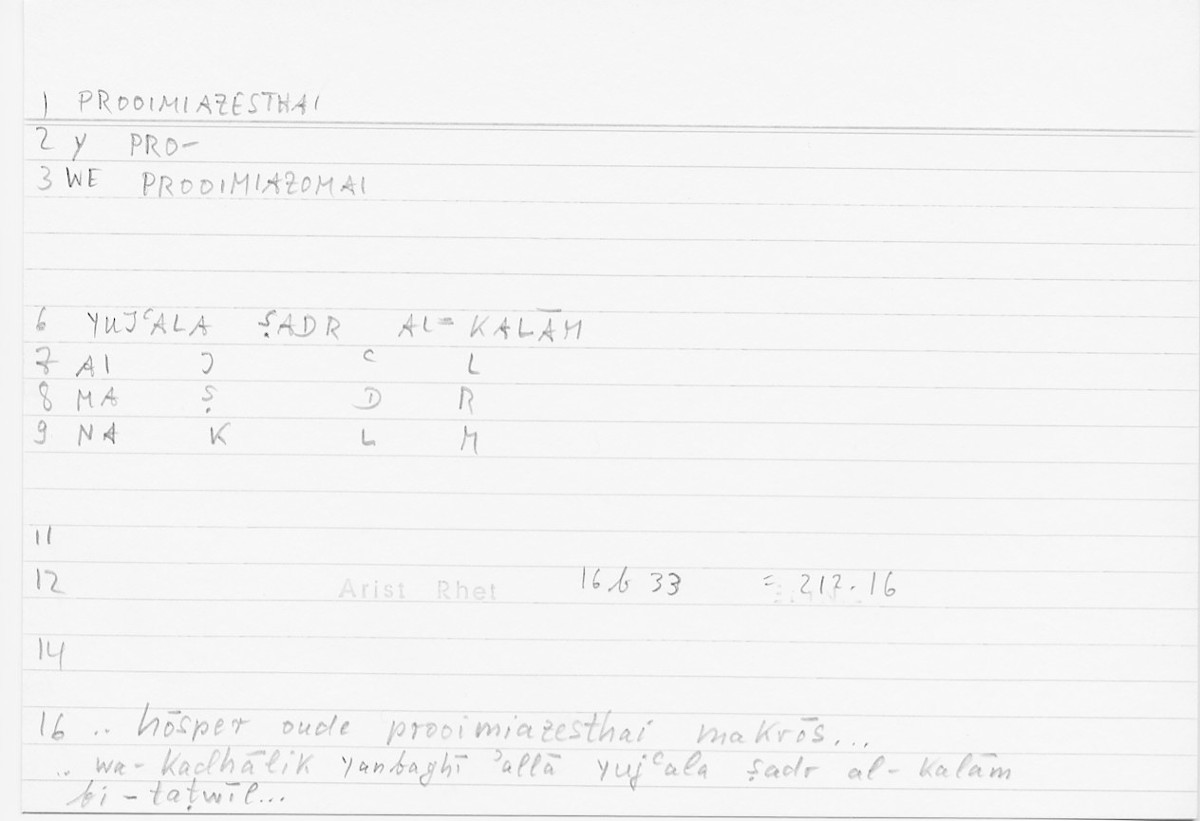 1 PROOIMIAZESTHAI
2 Y PRO-
3 WE PROOIMIAZOMAI
6 YUJʿALA ṢADR AL-KALĀM
7 AI J ʿ L
8 MA Ṣ D R
9 NA K L M
11
12 Arist Rhet 16b33 = 217.16
14
16 .. hōsper oude prooimiazesthai makrōs...
.. wa-kadhālik yanbaghī ʾallā yujʿala ṣadr al-kalām
bi-taṭwīl...